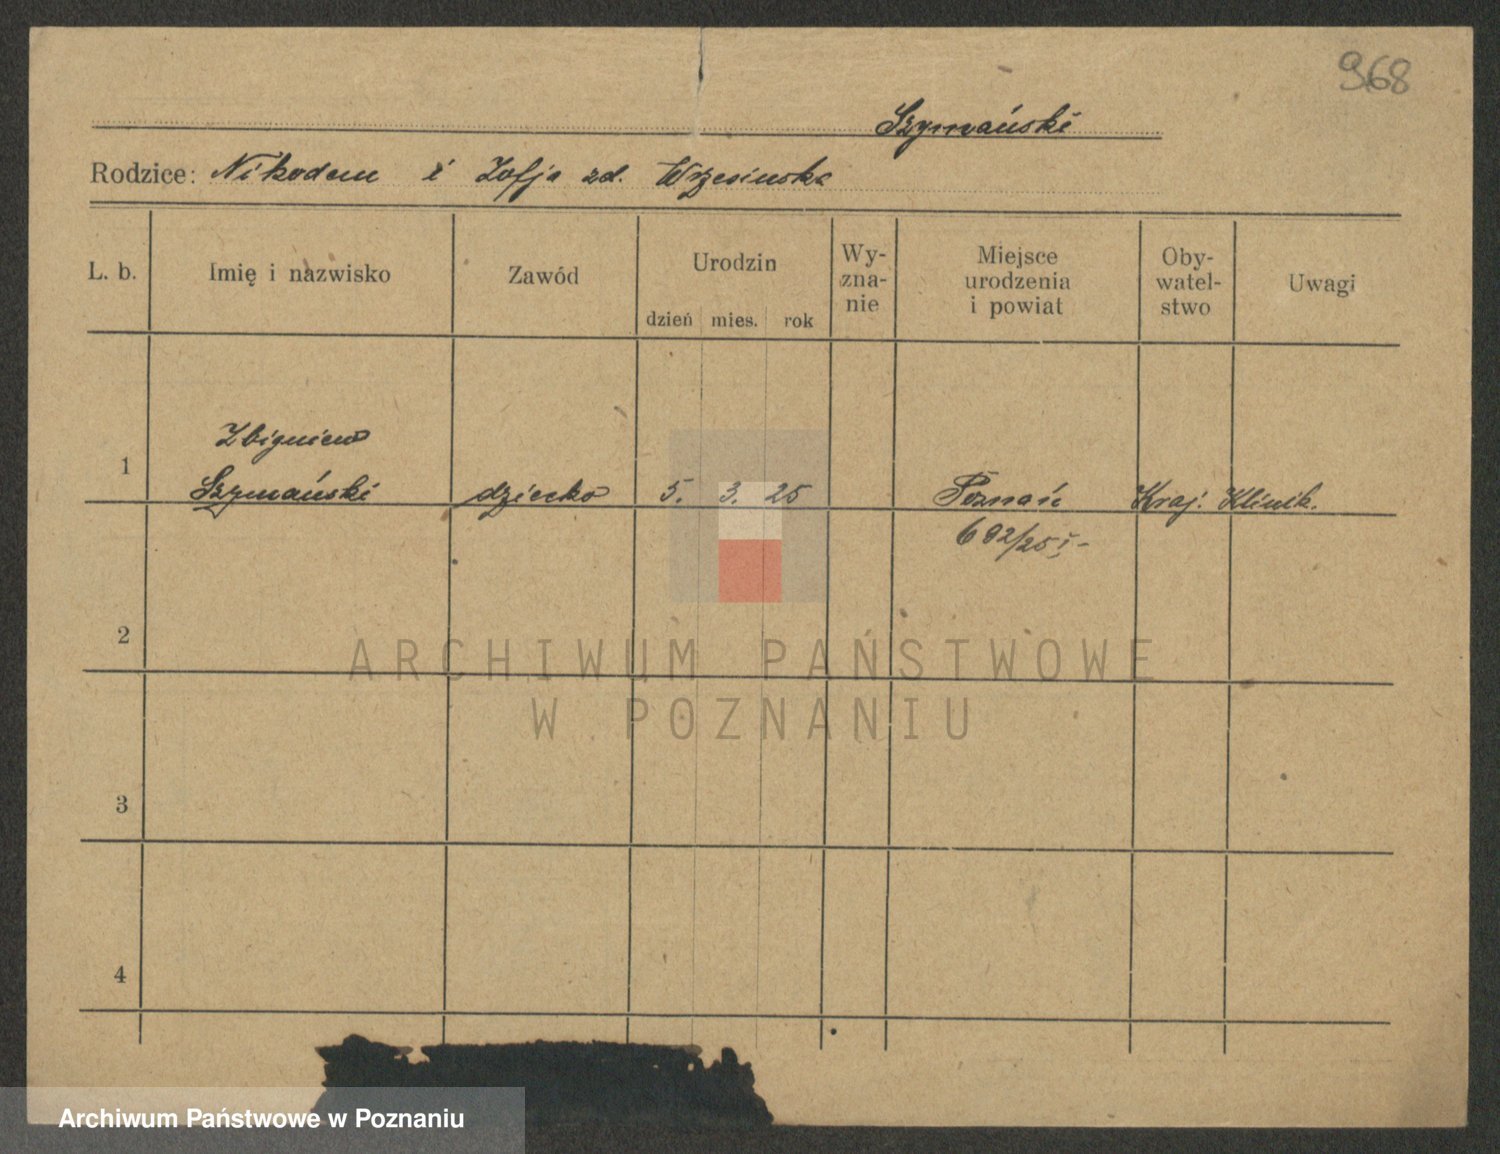 968
Szymański
Rodzice: Nikodem i Zofja zd. Wrzesinska
L. b.
Imię i nazwisko
Zawód
Urodzin
dzień mies. rok
Wy-
zna-
nie
Miejsce
urodzenia
i powiat
Oby-
watel-
stwo
Uwagi
1
Zbigniew
Szymański
dziecko
5. 3. 25
Poznań
Kraj. Klinik.
682/25 I -
2
3
4
ARCHIWUM PAŃSTWOWE
W POZNANIU
Archiwum Państwowe w Poznaniu